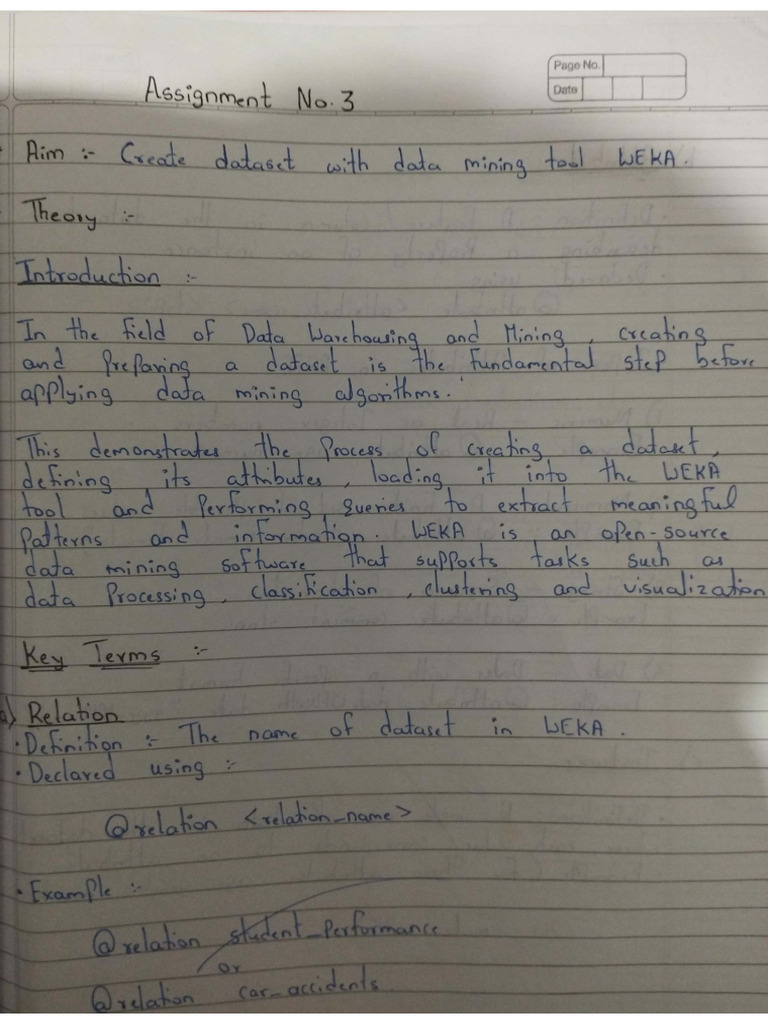 Page No.
Date
Assignment No. 3
Aim :- Create dataset with data mining tool WEKA.
Theory :-
Introduction :-
In the field of Data Warehousing and Mining, creating
and preparing a dataset is the fundamental step before
applying data mining algorithms.
This demonstrates the process of creating a dataset,
defining its attributes, loading it into the WEKA
tool and performing queries to extract meaningful
patterns and information. WEKA is an open-source
data mining software that supports tasks such as
data processing, classification, clustering and visualization
Key Terms :-
a) Relation
• Definition :- The name of dataset in WEKA.
• Declared using :-
@relation <relation_name>
• Example :-
@relation student_performance
or
@relation car_accidents